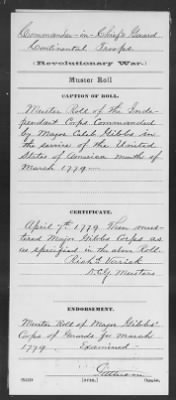 Commander-in-Chief's Guard
Continental Troops
(Revolutionary War.)
Muster Roll
CAPTION OF ROLL.
Muster Roll of the Inde-
pendant Corps Commanded
by Major Caleb Gibbs in
the service of the United
States of America month of
March 1779
CERTIFICATE.
April 7th 1779 Then mus-
tered Major Gibbs Corps as
as specified in the above Roll.
Richd Varick
D.C.G. Musters
ENDORSEMENT.
Muster Roll of Major Gibbs'
Corps of Guards for March
1779 Examined
Copyist.